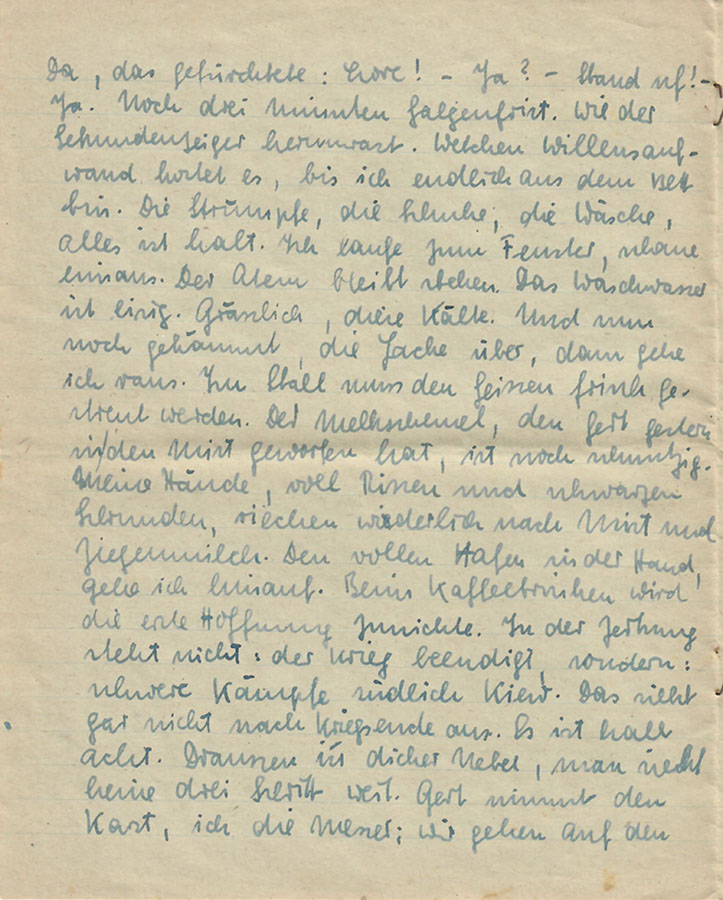 Da, das gefürchtete: Lore! - Ja? - Stand uf! -
Ja. Noch drei Minuten Galgenfrist. Wie der
Sekundenzeiger herumrast. Welchen Willensauf-
wand kostet es, bis ich endlich aus dem Bett
bin. Die Strümpfe, die Schuhe, die Wäsche,
alles ist kalt. Ich laufe zum Fenster, schaue
hinaus. Der Atem bleibt stehen. Das Waschwasser
ist eisig. Grässlich, diese Kälte. Und nun
noch gekämmt, die Jacke über, dann gehe
ich raus. Im Stall muss den Geissen frisch ge-
streut werden. Der Melkschemel, den Gert gestern
in den Mist geworfen hat, ist noch schmutzig.
Meine Hände, voll Rissen und schwarzen
Schrunden, riechen widerlich nach Mist und
Ziegenmilch. Den vollen Hafen in der Hand,
gehe ich hinauf. Beim Kaffeetrinken wird
die erste Hoffnung zunichte. In der Zeitung
steht nicht: der Krieg beendigt, sondern:
schwere Kämpfe südlich Kiew. Das sieht
gar nicht nach Kriegsende aus. Es ist halb
acht. Draussen ist dicker Nebel, man sieht
keine drei Schritt weit. Gert nimmt den
Karst, ich die Messer; wir gehen auf den